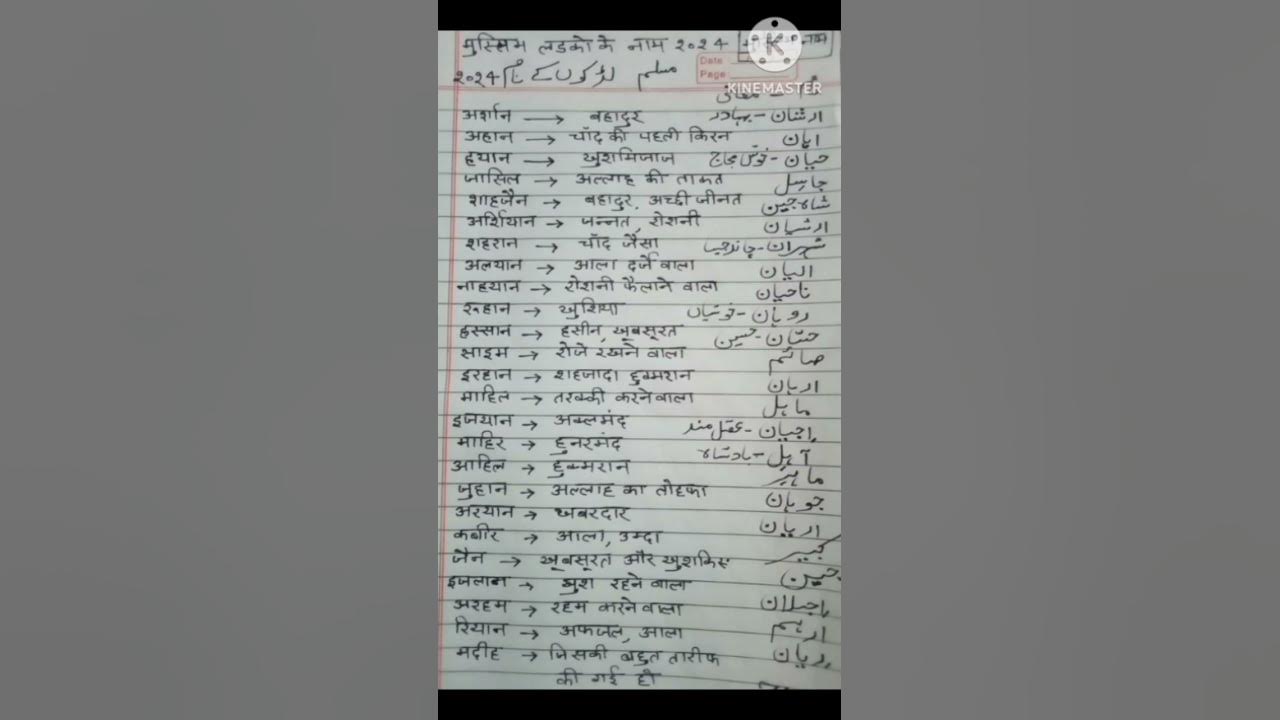 मुस्लिम लडको के नाम २०२४ नाम
KINEMASTER
Date
Page
२०२४ مسلم لڑکوں کے نام
معانی
अर्शान → बहादुर ارشان - بہادر
अहान → चाँद की पहली किरन اہان
हयान → खुशमिजाज حیان - خوش مجاج
जासिल → अल्लाह की ताकत جاسل
शाहजैन → बहादुर, अच्छी जीनत شاہ جین
अर्शियान → जन्नत, रोशनी ارشیان
शहरान → चाँद जैसा شہران - چاند جیسا
अलयान → आला दर्जे वाला الیان
नाहयान → रोशनी फैलाने वाला ناحیان
रूहान → खुशिया روہان - خوشیاں
हस्सान → हसीन, खूबसूरत حسّان - حسین
साइम → रोजे रखने वाला صائم
इरहान → शहजादा हुक्मरान ارہان
माहिल → तरक्की करने वाला ماہل
इजयान → अक्लमंद اجیان - عقل مند
माहिर → हुनरमंद آہل - بادشاہ
आहिल → हुक्मरान ماہر
जुहान → अल्लाह का तोहफा جوہان
अरयान → खबरदार اریان
कबीर → आला, उम्दा کبیر
जैन → खूबसूरत और खुशकिस جین
इजलान → खुश रहने वाला اجلان
अरहम → रहम करने वाला ارہم
रियान → अफजल, आला ریان
मदीह → जिसकी बहुत तारीफ
की गई हो